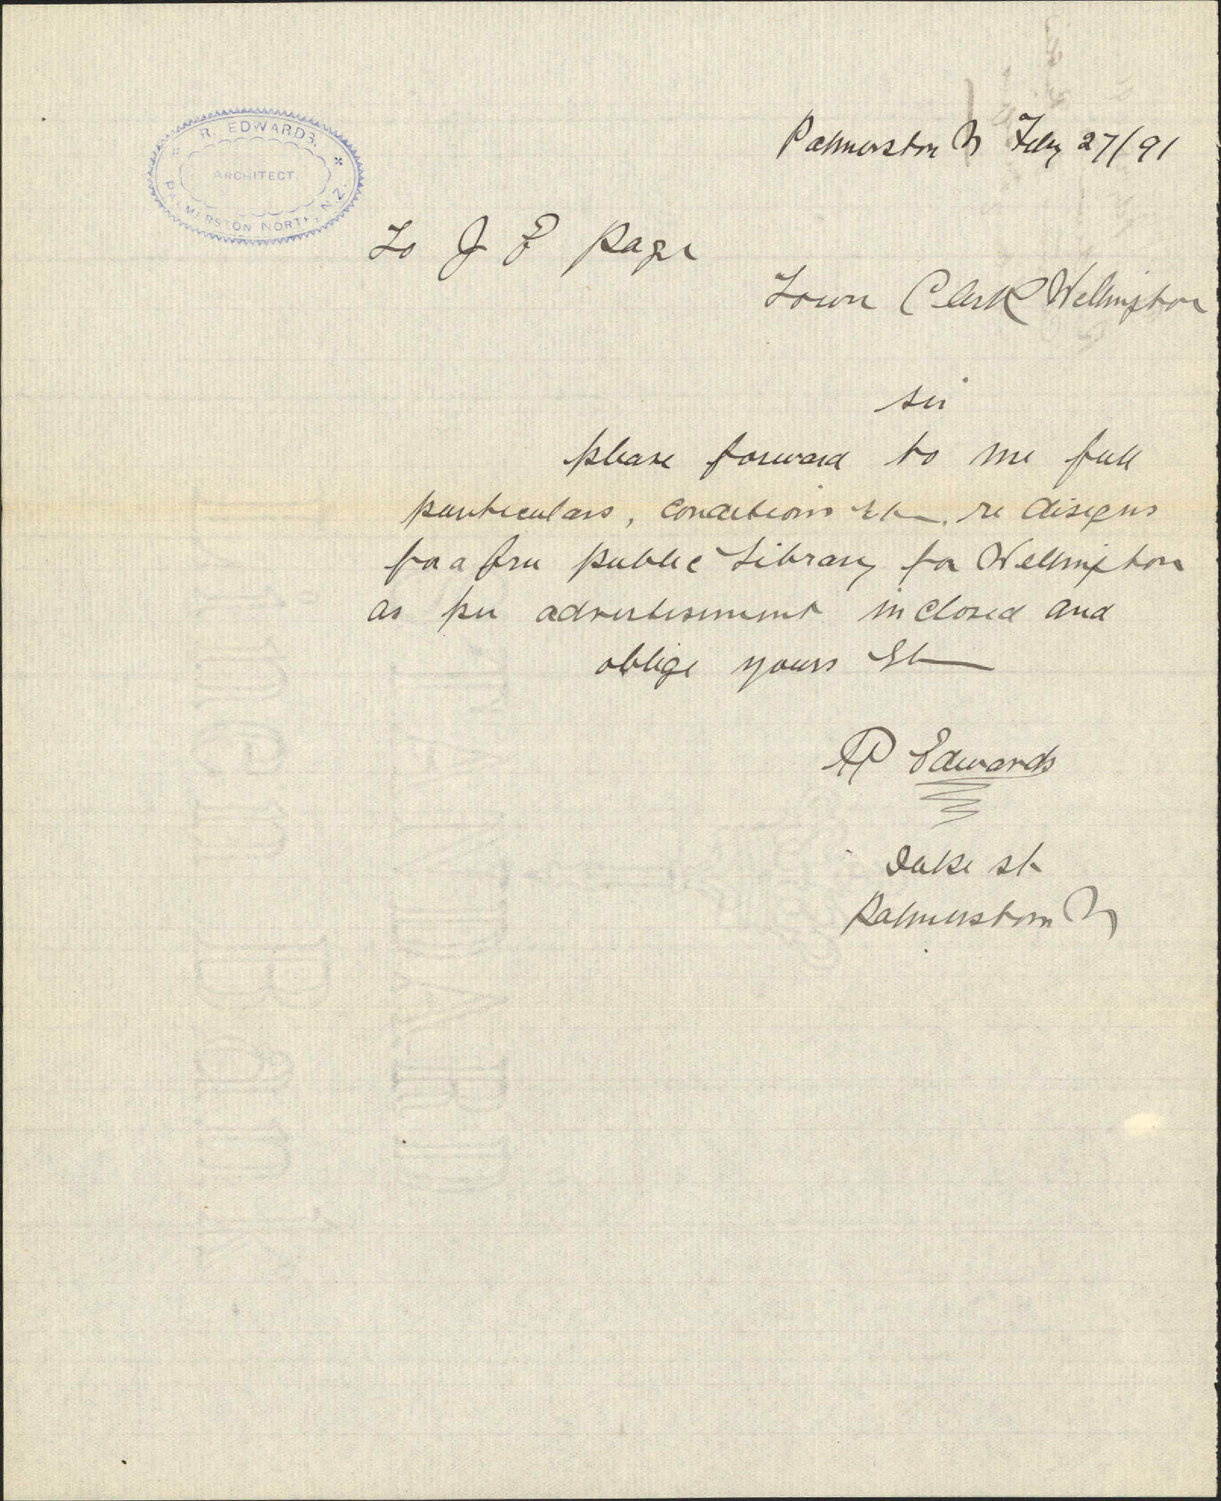 R. EDWARDS,
ARCHITECT.
PALMERSTON NORTH, N.Z.
Palmerston N Feby 27/91
To J E Page
Town Clerk Wellington
Sir
please forward to me full
particulars, conditions Etc. re disigns
for a free public Library for Wellington
as per advertisement inclosed and
oblige yours Etc
R Edwards
Duke st
Palmerston N
LINEN BANK
STANDARD